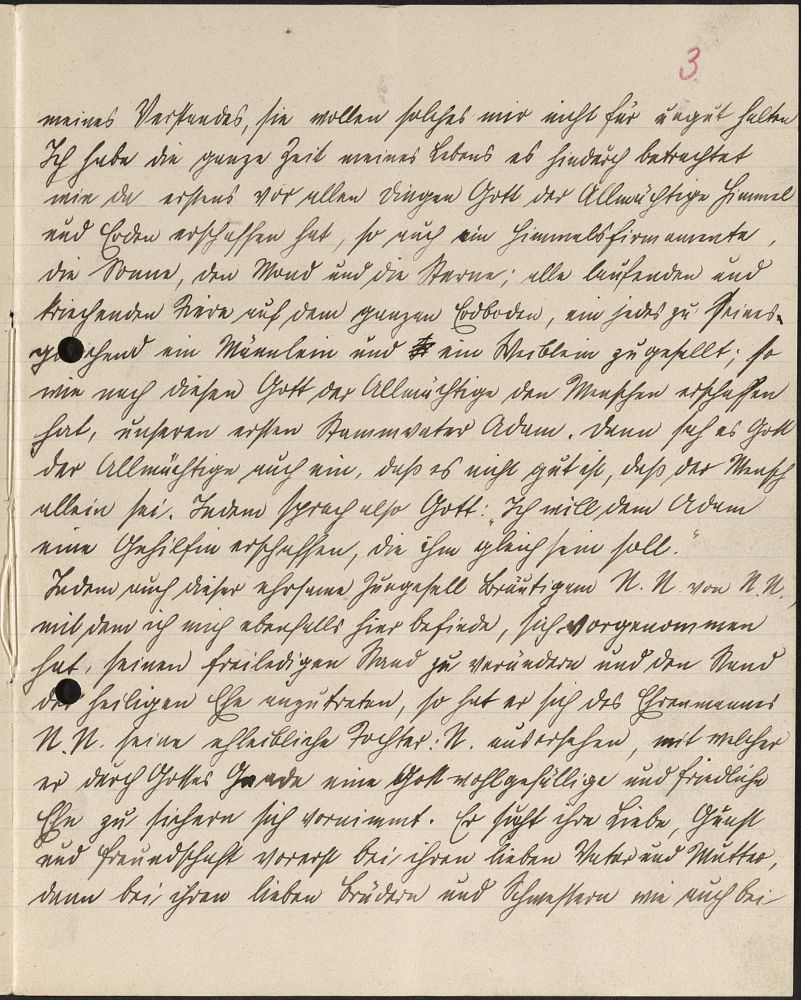 3
meines Verstandes, sie wollen solches mir nicht für ungut halten
Ich habe die ganze Zeit meines Lebens es hindurch betrachtet
wie da erstens vor allen Dingen Gott der Allmächtige Himmel
und Erden erschaffen hat, so auch ein Himmelsfirmamente,
die Sonne, den Mond und die Sterne; alle laufenden und
kriechenden Tiere auf dem ganzen Erdboden, ein jedes zu seines-
gleichend ein Männlein und ein Weiblein zugesellt; so
wie nach diesen Gott der Allmächtige den Menschen erschaffen
hat, unseren ersten Stammvater Adam. Dann sah es Gott
der Allmächtige auch ein, daß es nicht gut ist, daß der Mensch
allein sei. Indem sprach also Gott: „Ich will dem Adam
eine Gehilfin erschaffen, die ihm gleich sein soll."
Indem auch dieser ehrsame Junggesell Bräutigam N. N. von N. N.,
mit dem ich mich ebenfalls hier befinde, sich vorgenommen
hat, seinen freiledigen Stand zu verändern und den Stand
der heiligen Ehe anzutreten, so hat er sich des Ehrenmannes
N. N. seine ehleibliche Tochter N. ausersehen, mit welcher
er durch Gottes Gnade eine Gott wohlgefällige und friedliche
Ehe zu sichern sich vornimmt. Er sucht ihre Liebe, Gunst
und Freundschaft vorerst bei ihren lieben Vater und Mutter,
dann bei ihren lieben Brüdern und Schwestern wie auch bei